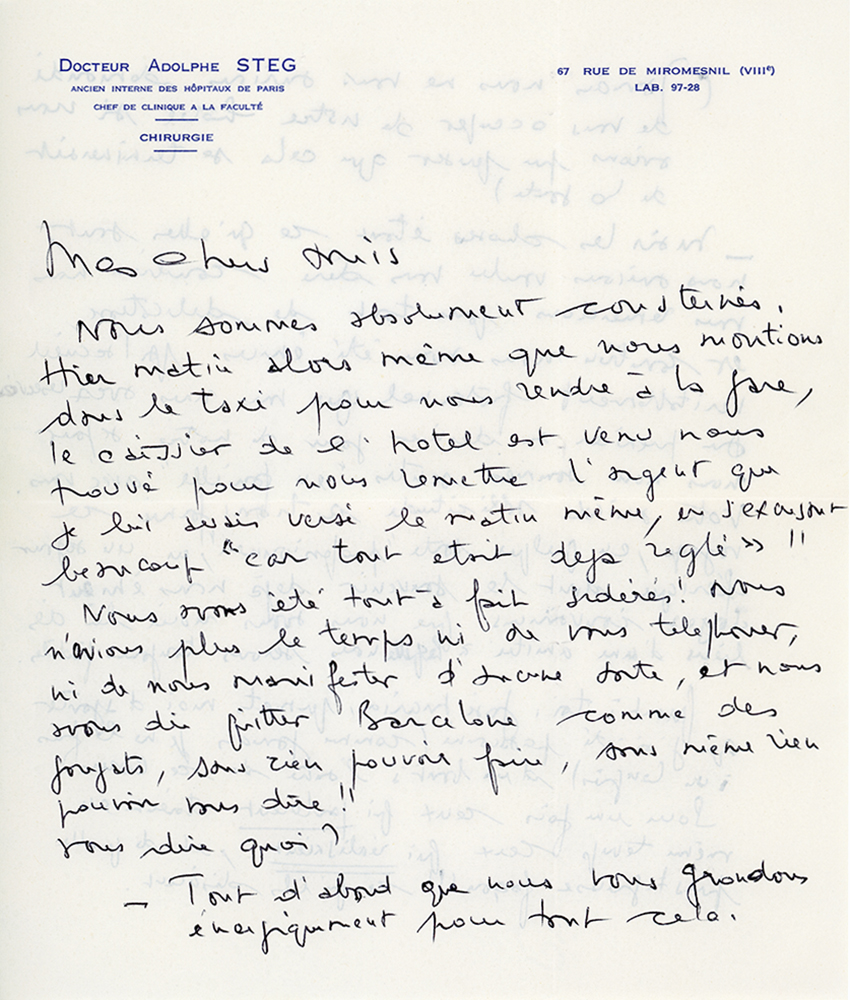 DOCTEUR ADOLPHE STEG
ANCIEN INTERNE DES HÔPITAUX DE PARIS
CHEF DE CLINIQUE A LA FACULTÉ
CHIRURGIE
67 RUE DE MIROMESNIL (VIIIe)
LAB. 97-28
Mes chers amis
Nous sommes absolument consternés.
Hier matin alors même que nous montions
dans le taxi pour nous rendre à la gare,
le caissier de l'hotel est venu nous
trouvé pour nous remettre l'argent que
je lui avais versé le matin même, en s'excusant
beaucoup "car tout etait deja reglé" !!
Nous avons été tout à fait sidérés! Nous
n'avions plus le temps ni de vous telephoner,
ni de nous manifester d'aucune sorte, et nous
avons dû quitter Barcelone comme des
goujats, sans rien pouvoir faire, sans même rien
pouvoir vous dire!!
vous dire quoi?
- Tout d'abord que nous vous grondons
énergiquement pour tout cela.